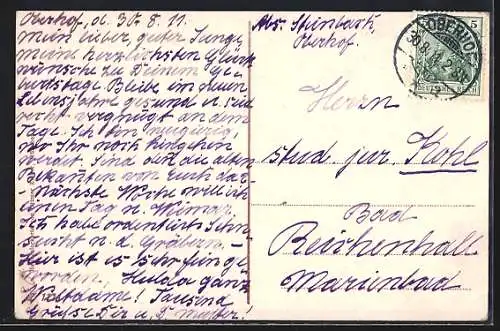 Oberhof, d. 30. 8. 11.
Mein lieber, guter Junge
meine herzlichsten Glück
wünsche zu Deinem Ge
burtstage. Bleibe im neuen
Lebensjahre gesund u. sei
recht vergnügt an dem
Tage. Ich bin neugierig,
wo Ihr noch hingehen
werdet. Sind denn die alten
Bekannten von Euch da?
Nächste Woche will ich
einen Tag n. Weimar.
Ich habe ordentlich Sehn
sucht n. d. Gräbern.
Hier ist es sehr
worden, ganz
Tausend
Grüße Dir u. D. Mutter!
Abs. Steinbach,
Oberhof.
OBERHOF
30.8.11
5
Herrn
stud jur. Kohl
Bad
Reichenhall
Marienbad